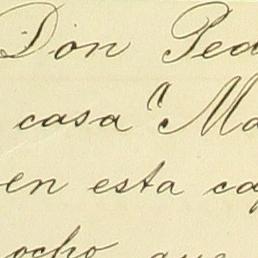 Don Ped
casa "Ma
en esta ca
ocho que